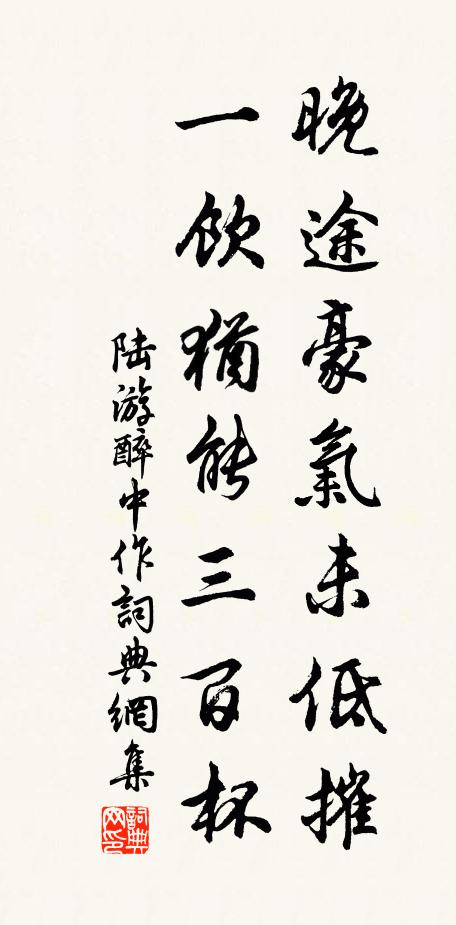 晚途豪氣未低摧
一飲猶能三百杯
陸游醉中作詞典網集
詞典网印